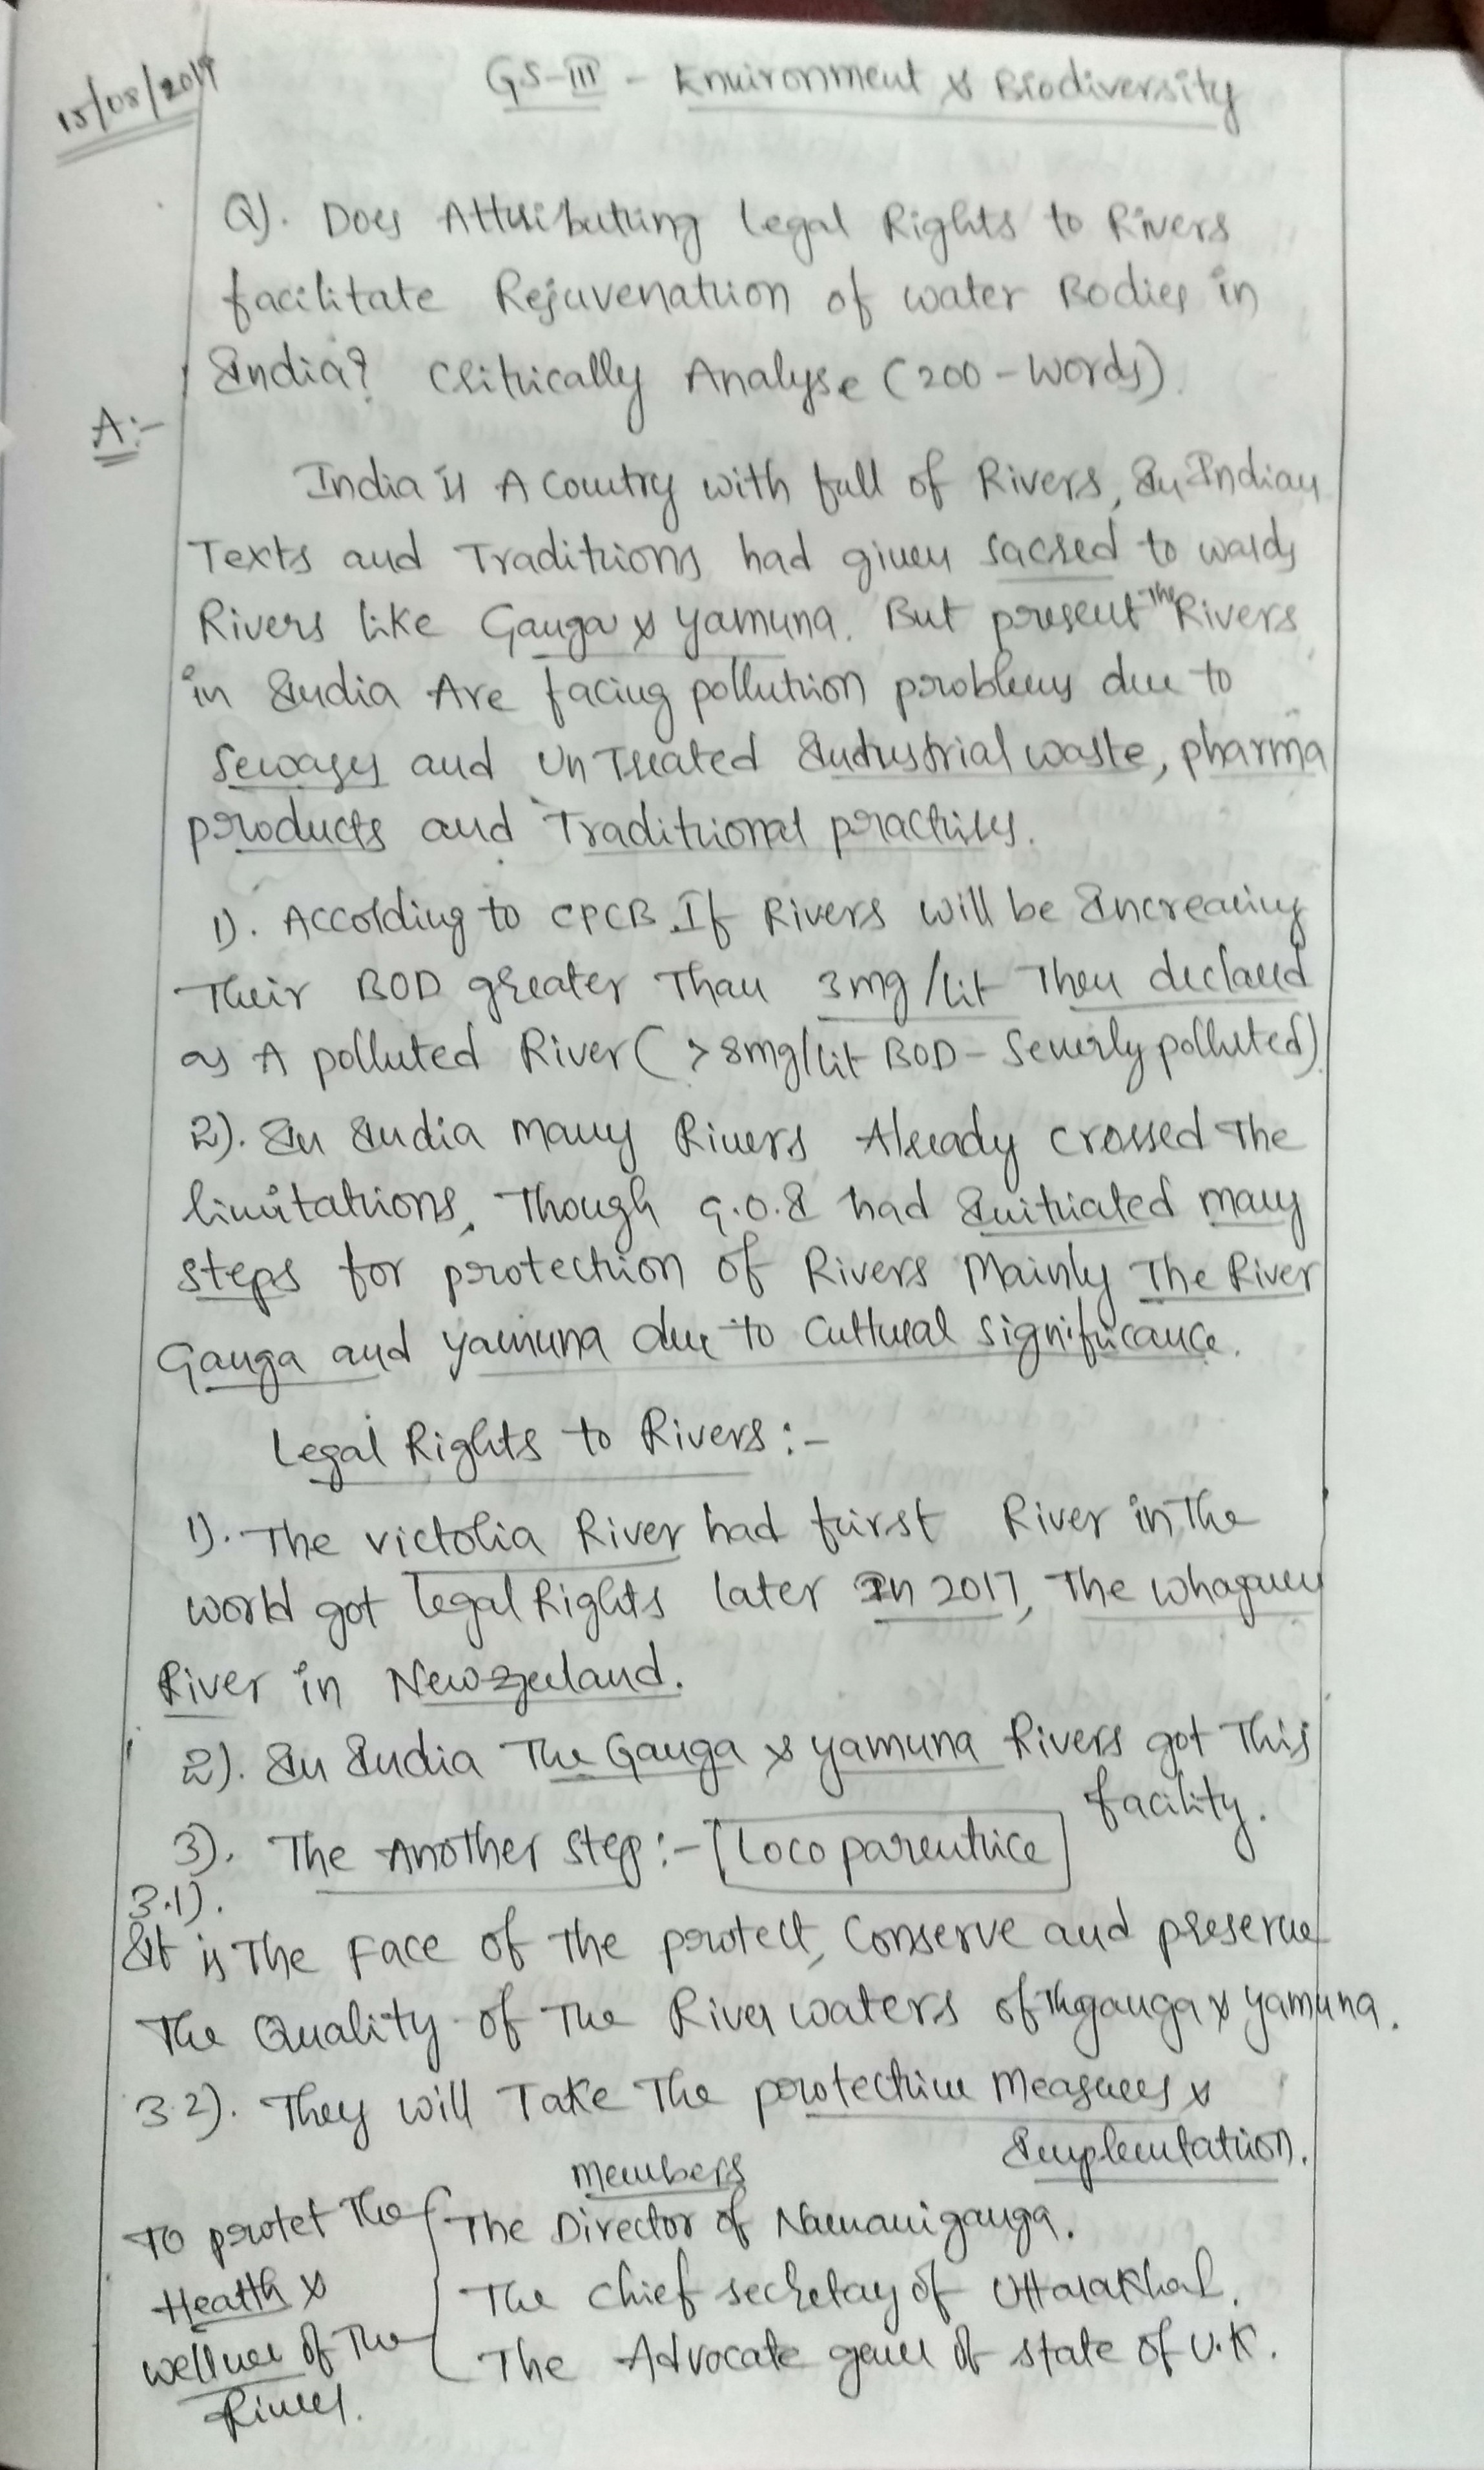 15/08/2019
GS-III - Environment & Biodiversity
Q). Does Attributing Legal Rights to Rivers
facilitate Rejuvenation of water Bodies in
India? Critically Analyse (200-Words).
A:-
India is A Country with full of Rivers, In Indian
Texts and Traditions had given sacred to wards
Rivers like Ganga & Yamuna. But present The Rivers
in India Are facing pollution problems due to
Sewages and UnTreated Industrial waste, pharma
products and Traditional practices.
1). According to CPCB If Rivers will be Increacing
Their BOD greater Than 3mg/lit Then declared
as A polluted River (>8mg/lit BOD - Severly polluted)
2). In India many Rivers Already crossed The
limitations, Though G.O.I had Initiated many
steps for protection of Rivers Mainly The River
Ganga and Yamuna due to Cultural significance.
Legal Rights to Rivers:-
1). The Victoria River had first River in The
world got Legal Rights later In 2017, The
River in Newzeeland.
2). In India The Ganga & Yamuna Rivers got This
facility.
3). The Another step:- [Loco parentrice]
3.1).
It is The Face of The protect, Conserve and preserve
The Quality of The River waters of The ganga & Yamuna.
3.2). They will Take The protective Measures &
Implemtation.
members
To protet The
Health &
wellnee of The
River.
The Director of Namamiganga.
The Chief secretay of Uttarakhad.
The Advocate genel of state of U.K.